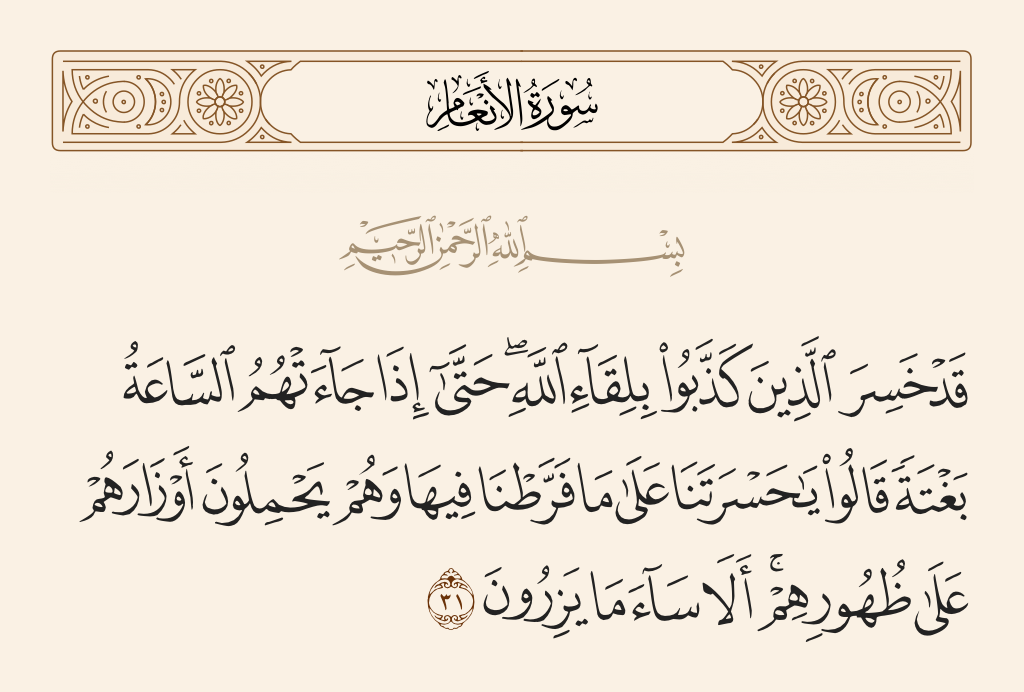 سُورَةُ الأَنْعَامِ
بِسْمِ ٱللَّهِ ٱلرَّحْمَٰنِ ٱلرَّحِيمِ
قَدْ خَسِرَ ٱلَّذِينَ كَذَّبُوا۟ بِلِقَآءِ ٱللَّهِ ۖ حَتَّىٰٓ إِذَا جَآءَتْهُمُ ٱلسَّاعَةُ
بَغْتَةً قَالُوا۟ يَٰحَسْرَتَنَا عَلَىٰ مَا فَرَّطْنَا فِيهَا وَهُمْ يَحْمِلُونَ أَوْزَارَهُمْ
عَلَىٰ ظُهُورِهِمْ ۚ أَلَا سَآءَ مَا يَزِرُونَ ٣١